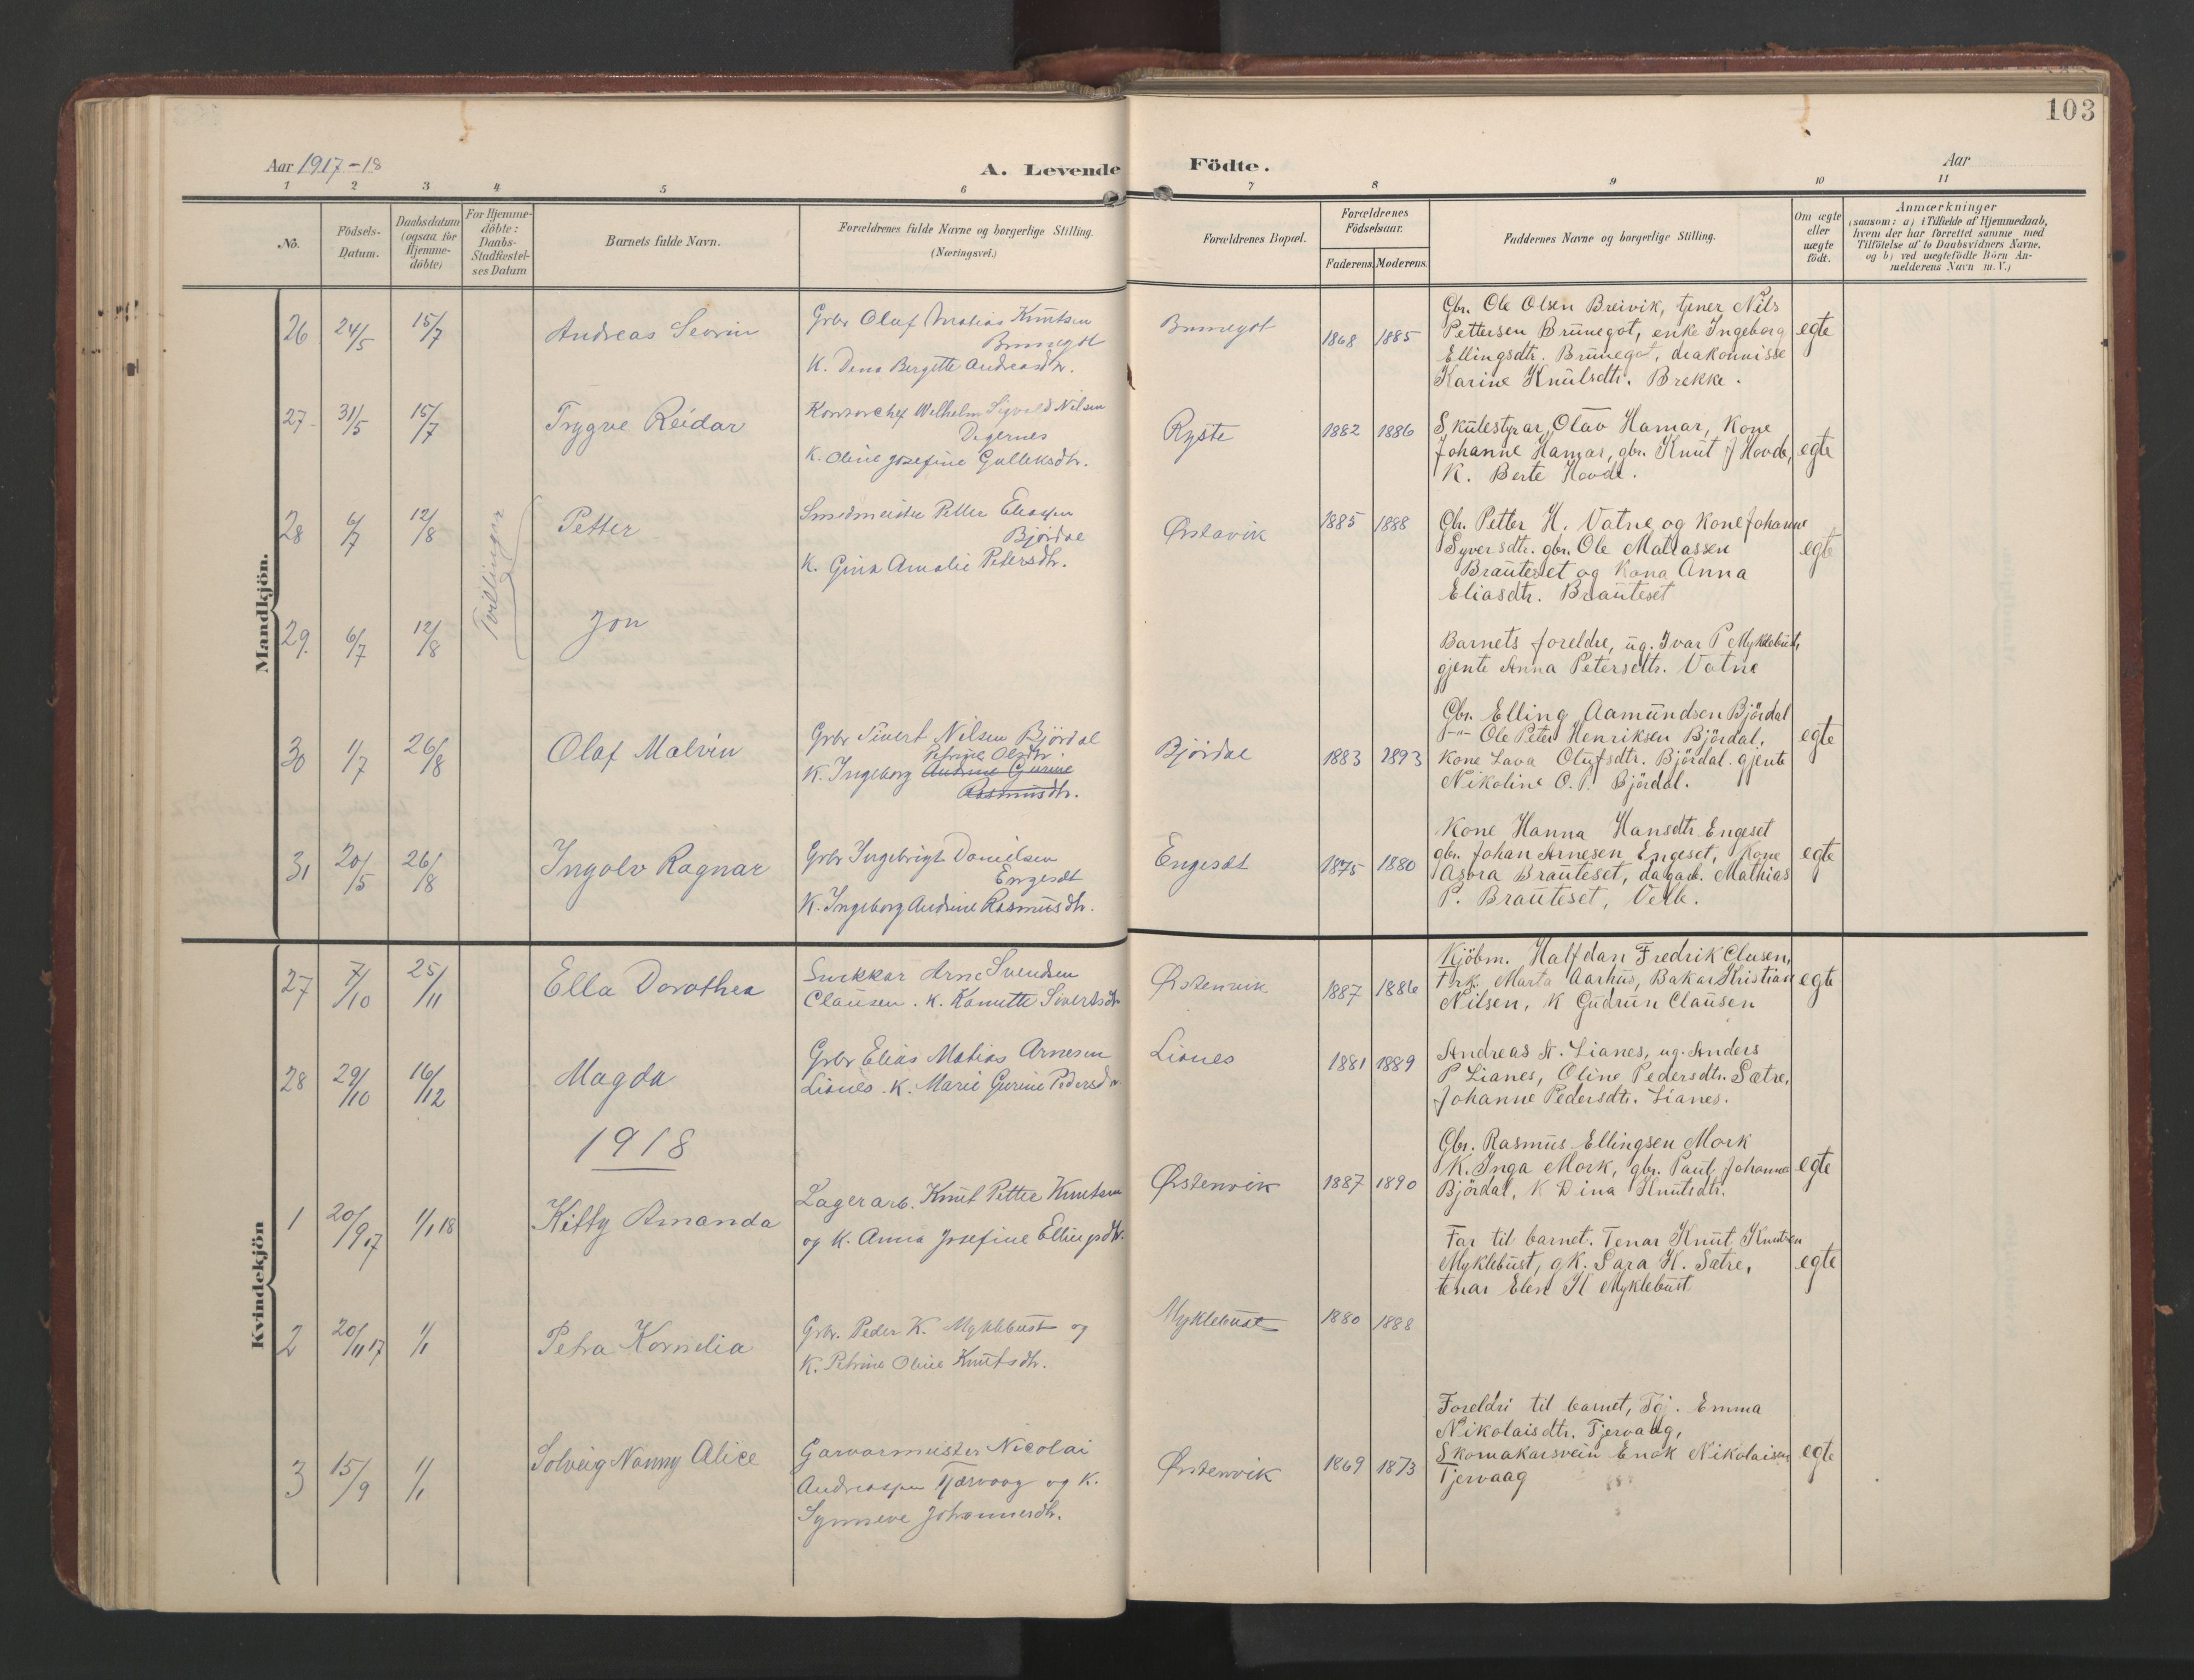 103
Aar 1917-18
A. Levende Födte.
Aar
1 2 3 4 5 6 7 8 9 10 11
No.
Födsels-
Datum.
Daabsdatum
(ogsaa for
Hjemme-
döbte)
For Hjemme-
döbte:
Daabs-
Stadfæstel-
ses Datum
Barnets fulde Navn.
Forældrenes fulde Navne og borgerlige Stilling.
(Næringsvei.)
Forældrenes Bopæl.
Forældrenes
Födselsaar.
Faderens. Moderens.
Faddernes Navne og borgerlige Stilling.
Om ægte
eller
uægte
födt.
Anmærkninger
(saasom: a) i Tilfælde af Hjemmedaab,
hvem der har forrettet samme med
Tilföielse af to Daabsvidners Navne,
og b) ved uægtefödte Börn An-
melderens Navn m. V.)
Mandkjön.
26 24/5 15/7 Andreas Severin
Grbr Oluf Mathias Knutsen
Brunegot
K. Dena Bergitte Andreasdtr.
Brunegot 1868 1885
Gbr. Ole Olsen Breivik, tener Nils
Pettersen Brunegot, enke Ingeborg
Ellingsdtr. Brunegot, diakonnisse
Karine Knutsdtr. Brekke.
egte
27 31/5 15/7 Trygve Reidar
Kontorchef Wilhelm Sigvald Nilsen
Degernes
K. Oline Josefine Gulleksdtr.
Ryste 1882 1886
Skulestyrar Olav Hamar, Kone
Johanne Hamar, gbr. Knut J Hovde,
K. Berte Hovde.
egte
28 6/7 12/8 Tvillinger Petter
Smedmeister Petter Eliassen
Björdal
K. Gina Amalie Petersdtr.
Ørstavik 1885 1888
Gbr. Petter H. Vatne og Kone Johanne
Syversdtr. gbr. Ole Matiassen
Brauteset og Kona Anna
Eliasdtr. Brauteset
egte
29. 6/7 12/8 Jon
Barnets foreldre, ug. Ivar P Myklebust,
gjente Anna Petersdtr. Vatne
30 1/7 26/8 Olaf Malvin
Grbr Sivert Nilsen Björdal
Petrine Olsdtr
K. Ingeborg Andrine Gurine
Rasmusdtr.
Björdal 1883 1893
Gbr. Elling Aamundsen Björdal
-"- Ole Peter Henriksen Björdal,
Kone Lava Olufsdtr. Björdal. gjente
Nikoline O. P. Björdal.
egte
31 20/5 26/8 Ingolv Ragnar
Grbr Ingebrigt Danielsen
Engeset
K. Ingeborg Andrine Rasmusdtr.
Engeset 1875 1880
Kone Hanna Hansdtr Engeset
gbr. Johan Arnesen Engeset, Kone
Asora Brauteset, dagarb. Mathias
P. Brauteset, Velle.
egte
Kvindekjön
27 7/10 25/11 Ella Dorothea
Snekkar Arne Svendsen
Clausen. K. Kanutte Sivertsdtr
Ørstenvik 1887 1886
Kjöbm. Halfdan Fredrik Clausen,
frk. Marta Aarhus, Bakar Kristian
Nilsen, K Gudrun Clausen
egte
28 29/10 16/12 Magda
Grbr Elias Matias Arnesen
Lianes. K. Marie Gurine Pedersdtr.
Lianes 1881 1889
Andreas A. Lianes, ug. Anders
P Lianes, Oline Pedersdtr. Sætre,
Johanne Pedersdtr. Lianes.
1918
1 20/9 17 1/1 18 Kitty Amanda
Lagerarb. Knut Petter Knutsen
og K. Anna Josefine Ellingsdtr.
Ørstenvik 1887 1890
Gbr. Rasmus Ellingsen Mork
K. Inga Mork, gbr. Paul Johannes
Björdal, K Dina Knutsdtr.
egte
2 20/11 17 1/1 Petra Kornelia
Grbr. Peder K. Myklebust og
K. Petrine Oline Knutsdtr.
Myklebust 1880 1888
Far til barnet. Tenar Knut Knutsen
Myklebust, gK. Sara K. Sætre,
tenar Elen K Myklebust
egte
3 15/9 1/1 Solveig Nanny Alice
Garvarmeister Nicolai
Andreassen Tjærvaag og K.
Synneve Johannesdtr.
Ørstenvik 1869 1873
Foreldri til barnet, Tgj. Emma
Nikolaisdtr. Tjervaag,
Skomakarsvein Enok Nikolaisen
Tjervaag
egte